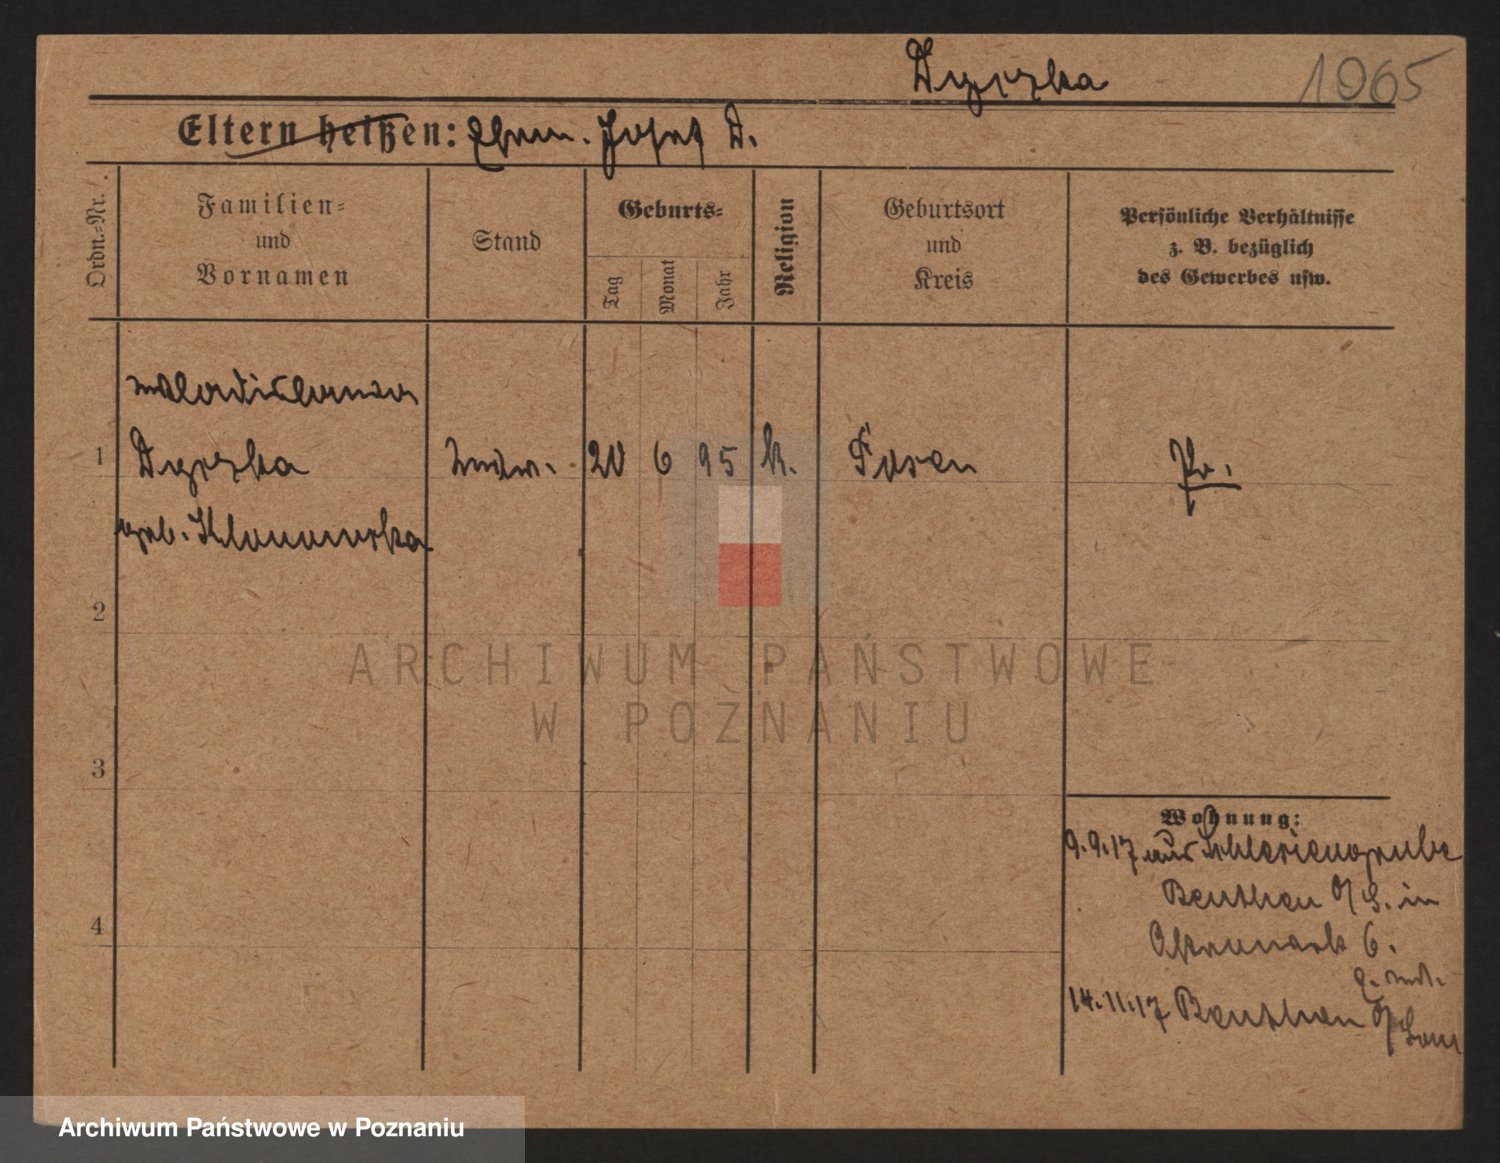 Dyrzka 1065
Eltern heißen: Ehem. Josef D.
Ordn.-Nr.
Familien-
und
Vornamen
Stand
Geburts-
Tag
Monat
Jahr
Religion
Geburtsort
und
Kreis
Persönliche Verhältnisse
z. B. bezüglich
des Gewerbes usw.
Wladislawa
1 Dyrzka 20 6 95 k. Posen Pr.
geb. Klonowska
2
3
4
Wohnung:
9.9.17 aus Schlesiengrube
Beuthen O/S. in
6.
14.11.17 Beuthen O/
ARCHIWUM PAŃSTWOWE
W POZNANIU
Archiwum Państwowe w Poznaniu